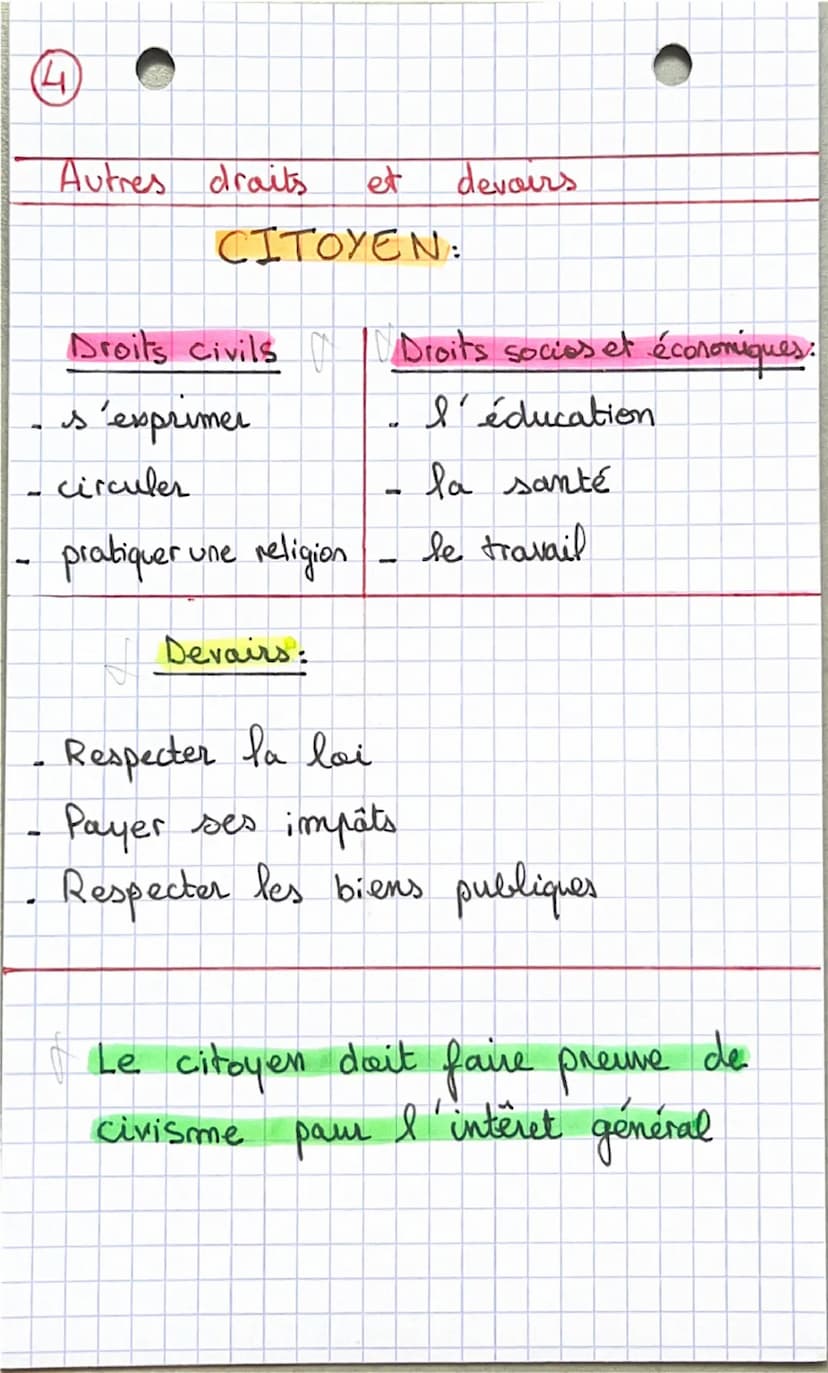 4
Autres droits et devoirs
CITOYEN:
Droits civils
- s'exprimer
- circuler
- pratiquer une religion
Droits socios et économiques:
- l'éducation
- la santé
- le travail
Devoirs:
- Respecter la loi
- Payer ses impôts
- Respecter les biens publiques
Le citoyen doit faire preuve de
civisme pour l'intêret général